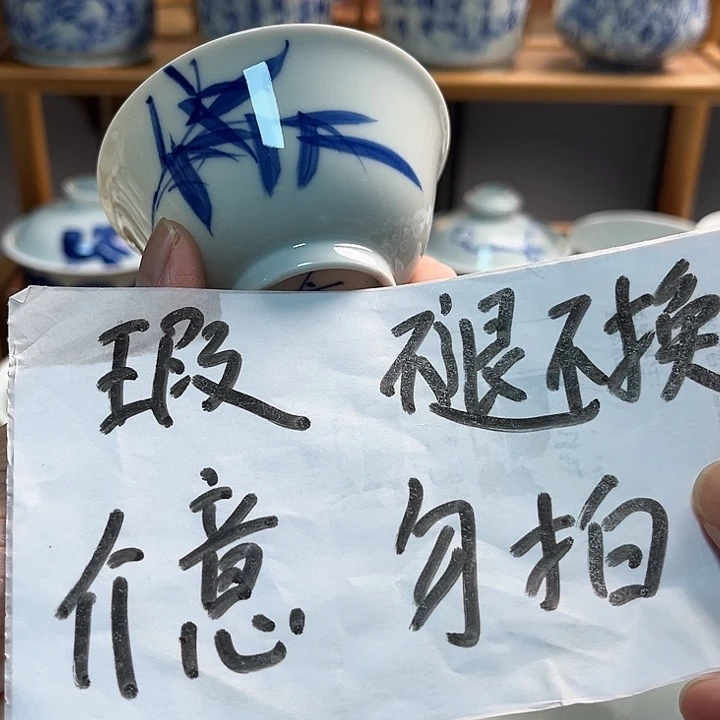 瑕 不退不换
介意 勿拍